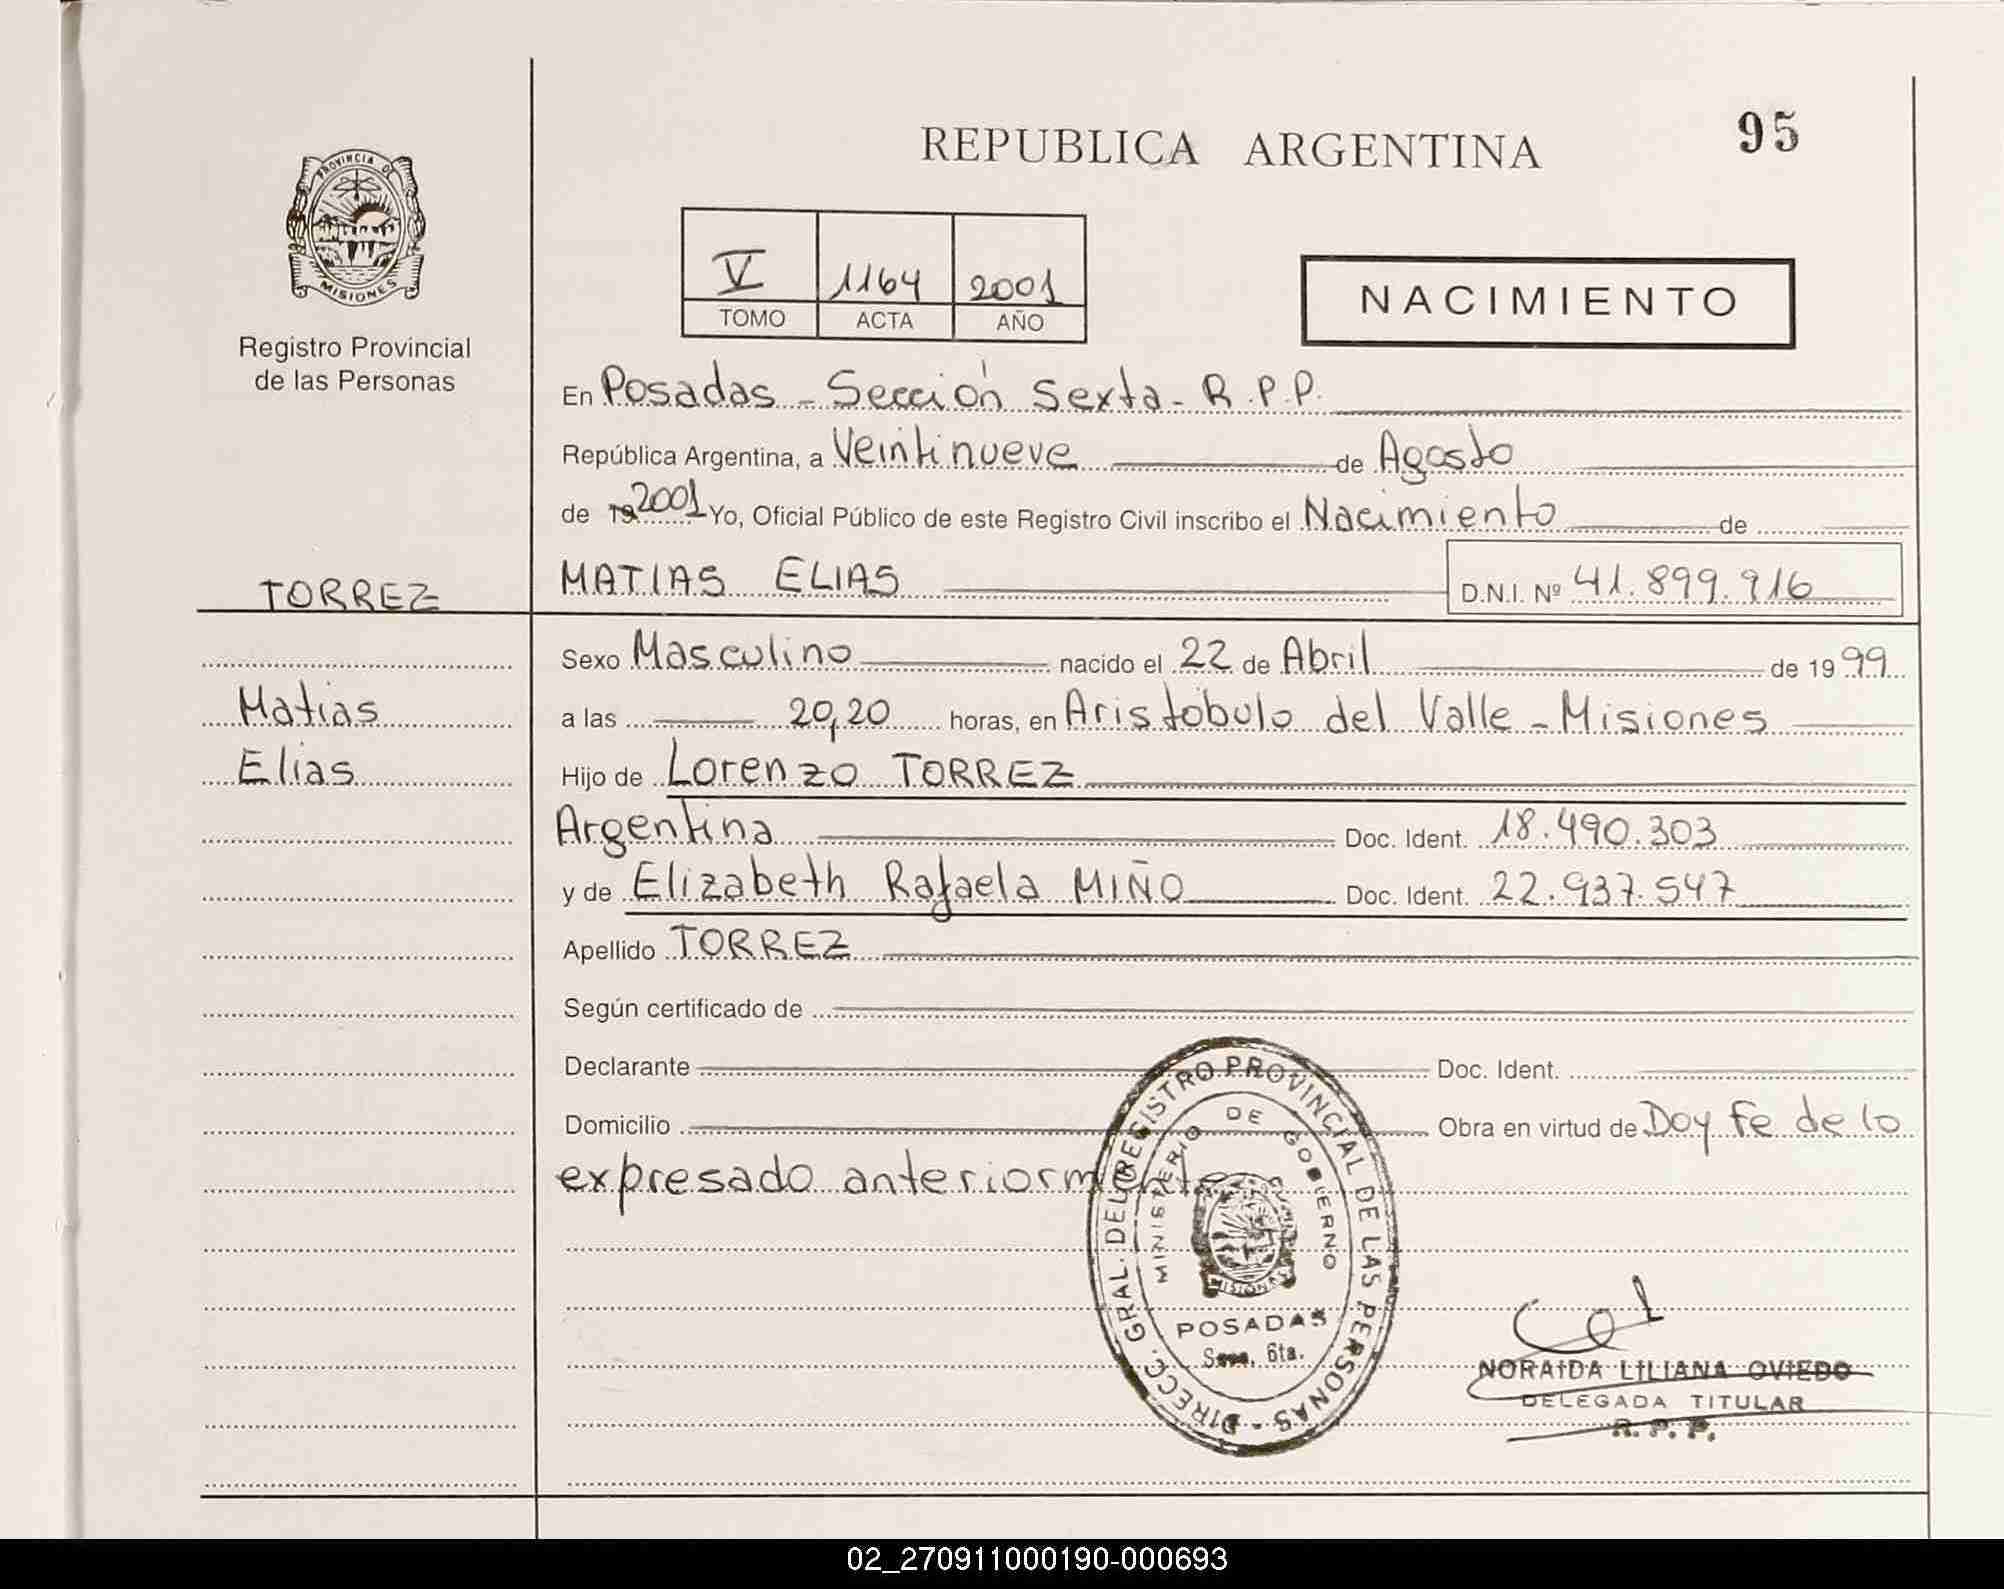 REPUBLICA ARGENTINA
95
PROVINCIA DE
MISIONES
Registro Provincial
de las Personas
V 1164 2001
TOMO ACTA AÑO
NACIMIENTO
En Posadas - Sección Sexta - R.P.P.
República Argentina, a Veintinueve de Agosto
de 19 2001 Yo, Oficial Público de este Registro Civil inscribo el Nacimiento de
TORREZ
MATIAS ELIAS D.N.I. Nº 41.899.916
Sexo Masculino nacido el 22 de Abril de 1999
Matias
a las 20,20 horas, en Aristóbulo del Valle - Misiones
Elias
Hijo de Lorenzo TORREZ
Argentina Doc. Ident. 18.490.303
y de Elizabeth Rafaela MIÑO Doc. Ident. 22.937.547
Apellido TORREZ
Según certificado de
Declarante Doc. Ident.
Domicilio Obra en virtud de Doy Fe de lo
expresado anteriormente
DIRECC. GRAL. DEL REGISTRO PROVINCIAL DE LAS PERSONAS -
MINISTERIO DE GOBIERNO
MISIONES
POSADAS
6ta.
NORAIDA LILIANA OVIEDO
DELEGADA TITULAR
R. P. P.
02_270911000190-000693